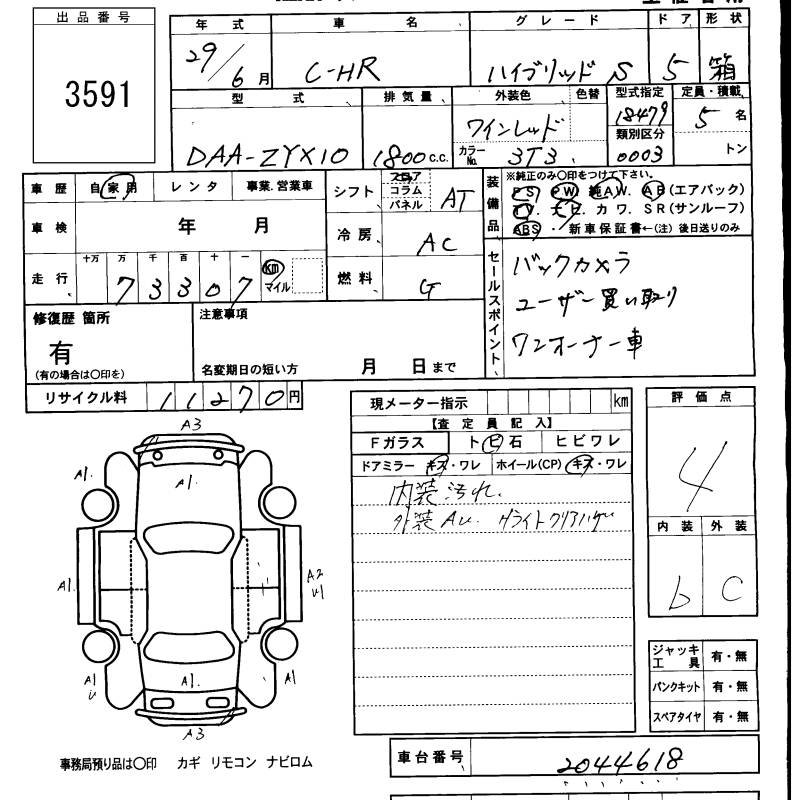 出品番号
3591
年式 車名 グレード ドア 形状
29/6月 C-HR ハイブリッド S 5 箱
型式 排気量 外装色 色替 型式指定 定員・積載
DAA-ZYX10 1800c.c. ワインレッド 18479 5名
カラーNo. 3T3 類別区分 0003 トン
車歴 自家用 レンタ 事業.営業車
車検 年 月
走行 十万 万 千 百 十 一
73307 km マイル
シフト フロア コラム パネル AT
冷房 AC
燃料 G
装備品
※純正のみ○印をつけて下さい。
PS. PW. 純AW. AB(エアバック)
TV. ナビ. カワ. SR(サンルーフ)
ABS・新車保証書←(注)後日送りのみ
セールスポイント
バックカメラ
ユーザー買い取り
ワンオーナー車
修復歴 箇所
有
(有の場合は○印を)
注意事項
名変期日の短い方 月 日まで
リサイクル料 11270円
現メーター指示 km
【査定員記入】
Fガラス トビ石 ヒビワレ
ドアミラー キズ・ワレ ホイール(CP) キズ・ワレ
内装汚れ.
外装AU.
評価点
4
内装 外装
b C
A3
A1.
A1.
A1
A1.
A2
U1
A1
U
A1.
A1
A3
ジャッキ工具 有・無
パンクキット 有・無
スペアタイヤ 有・無
事務局預り品は○印 カギ リモコン ナビロム
車台番号 2044618